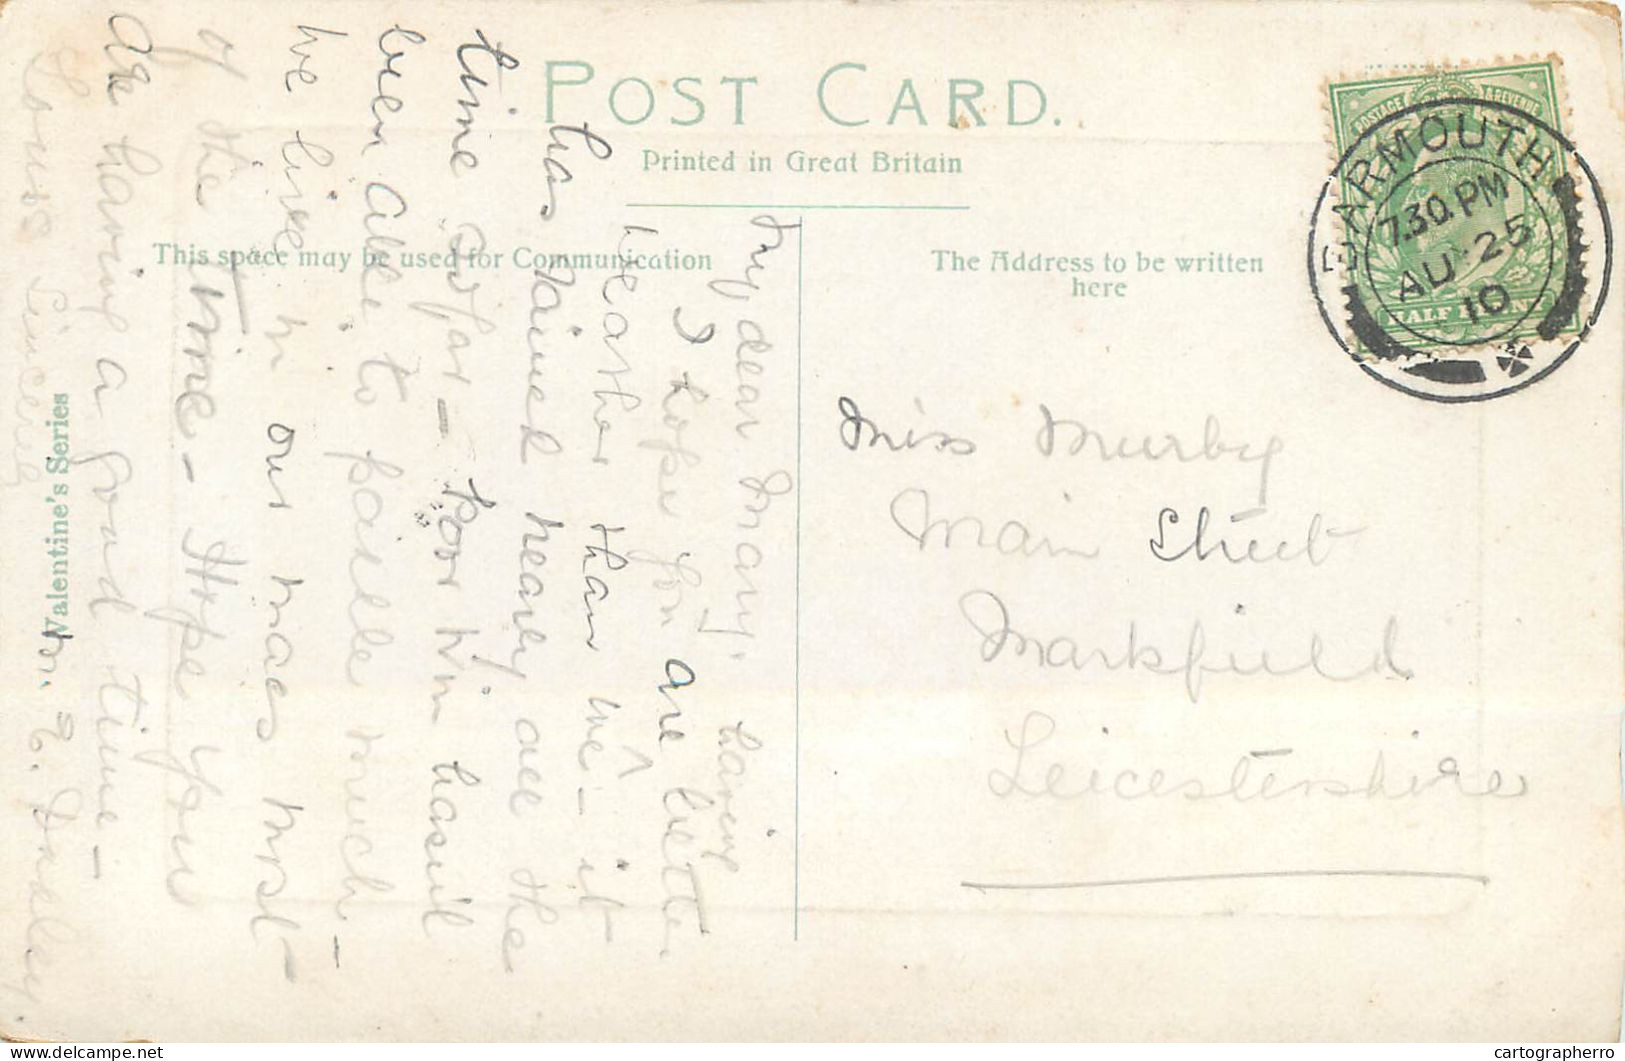 POST CARD.
Printed in Great Britain
This space may be used for Communication
The Address to be written
here
POSTAGE & REVENUE
HALF PENNY
BARMOUTH
7.30 PM
AU 25
10
Miss Murby
Main Street
Markfield
Leicestershire
My dear Mary,
I hope you are having better
weather than we - it
has rained nearly all the
time so far - poor Win hasn't
been able to paddle much -
we live in our macs most -
of the time - Hope you
are having a good time -
Yours Sincerely
E.
Valentine's Series
cartographerro
www.delcampe.net